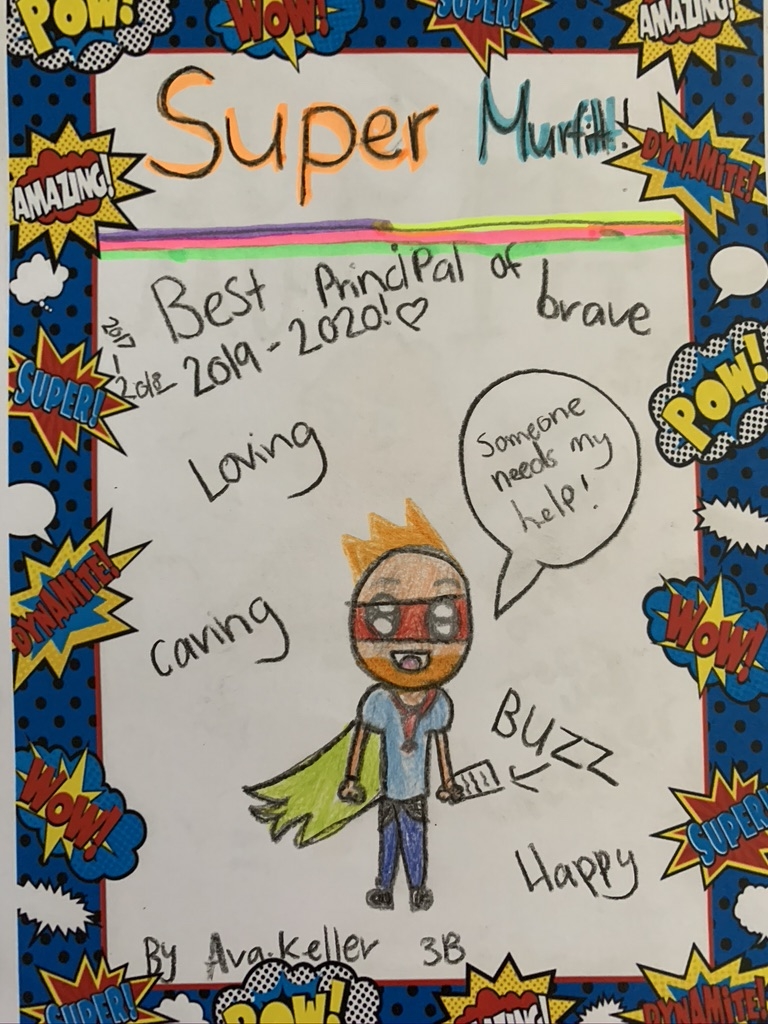 POW!
WOW!
SUPER!
AMAZING!
Super Murfitt!
AMAZING!
DYNAMITE!
Best Principal of
2017
-
2018- 2019-2020!
brave
SUPER!
POW!
Loving
Someone
needs my
help!
DYNAMITE!
caring
WOW!
BUZZ
WOW!
SUPER!
Happy
By Ava.Keller 3B
SUPER!
POW!
AMAZING!
DYNAMITE!